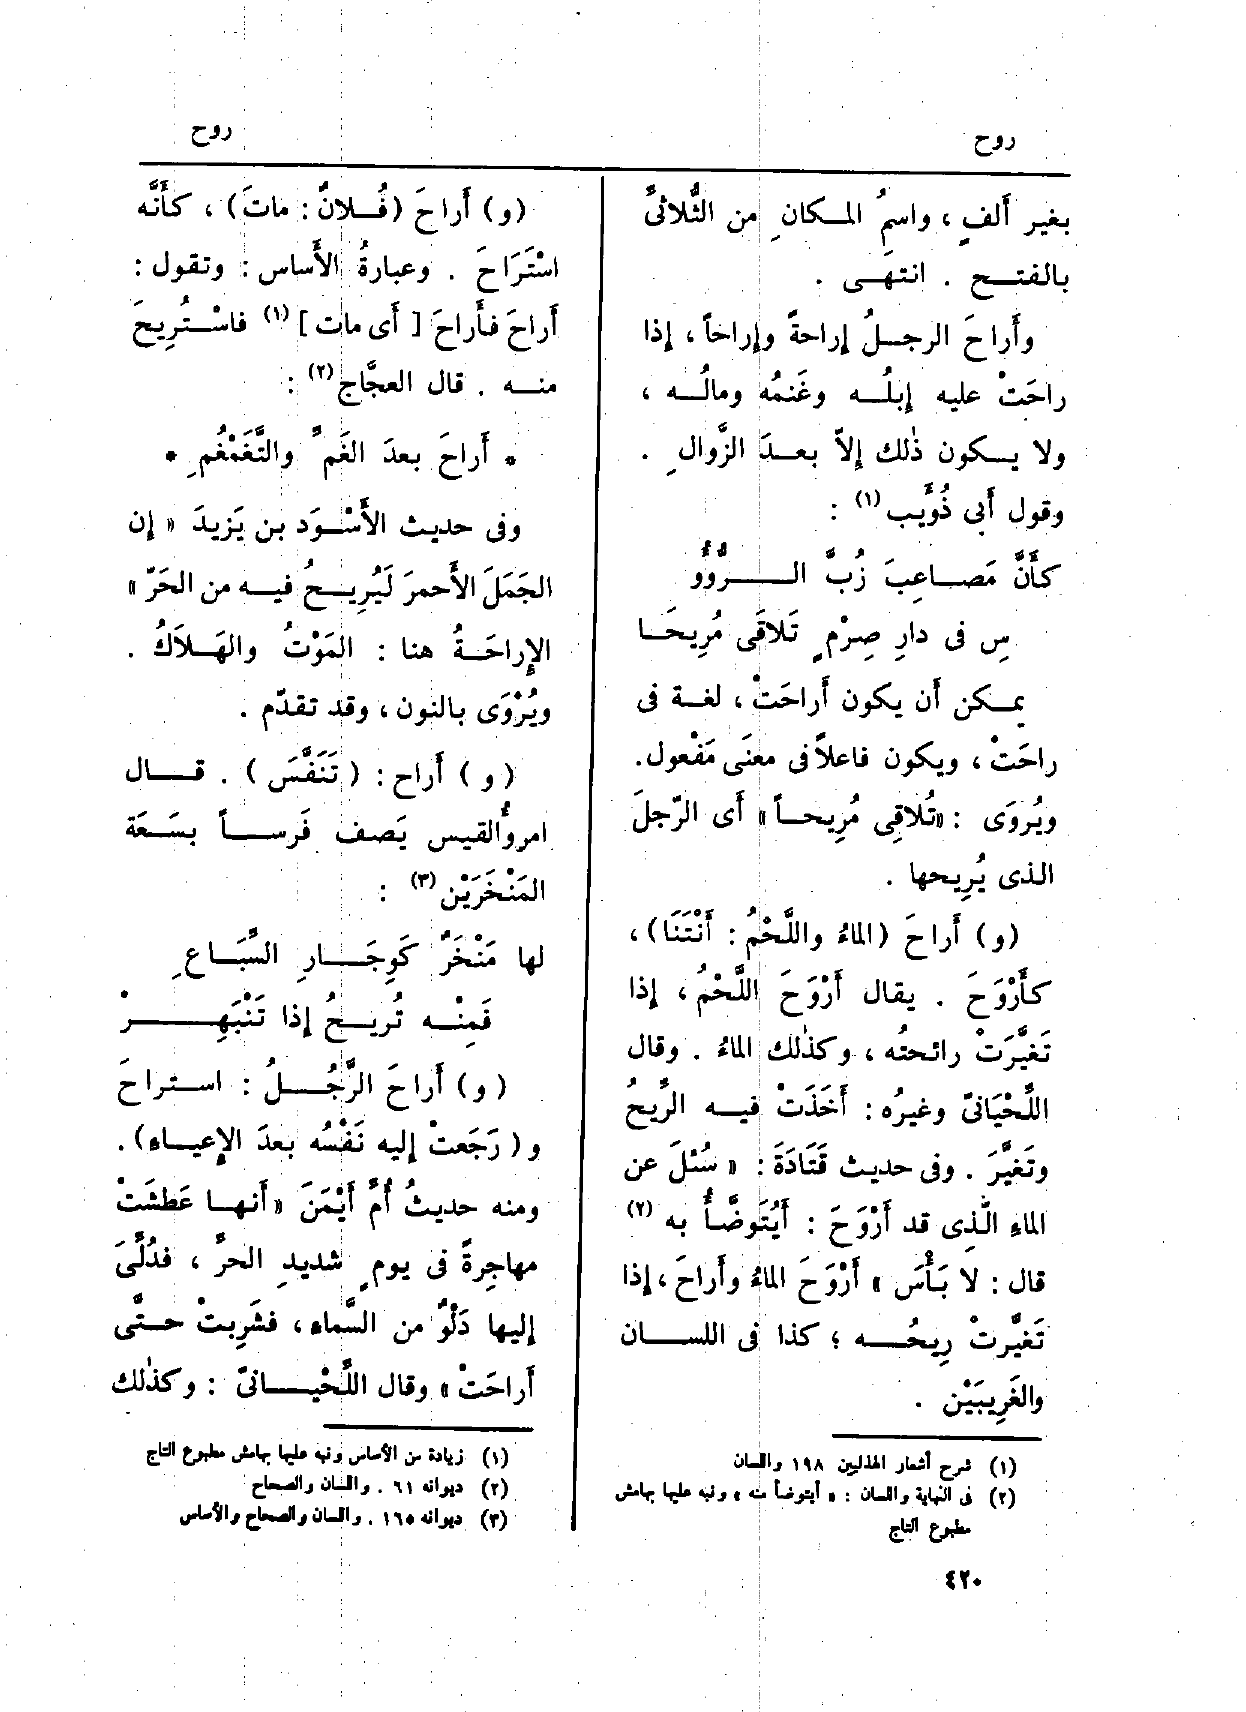 روح
روح
بغير أَلفٍ ، واسمُ المكانِ من الثُّلاثىِّ
بالفتح . انتهى .
وأَراحَ الرجلُ إراحةً وإراحاً ، إذا
راحَتْ عليه إبلُه وغَنمُه ومالُه ،
ولا يكون ذٰلك إلاّ بعدَ الزَّوالِ .
وقول أَبى ذُؤَيب (١) :
كأَنَّ مَصاعِبَ زُبَّ الرُّؤُو
سِ فى دارِ صِرْمٍ تَلاقَى مُرِيحَا
يمكن أَن يكون أَراحَتْ ، لغة فى
راحَتْ ، ويكون فاعلاً فى معنَى مَفْعول.
ويُروَى : «تُلاقِى مُرِيحاً» أَى الرّجلَ
الذى يُرِيحها .
(و) أَراحَ (الماءُ واللَّحْمُ : أَنْتَنَا) ،
كأَرْوَحَ . يقال أَرْوَحَ اللَّحْمُ ، إذا
تَغيَّرَتْ رائحتُه ، وكذٰلك الماءُ . وقال
اللِّحْيَانىّ وغيرُه : أَخَذَتْ فيه الرِّيحُ
وتَغيَّرَ . وفى حديث قَتَادَةَ : « سُئلَ عن
الماءِ الَّذِى قد أَرْوَحَ : أَيُتَوضَّأُ به (٢)
قال : لا بَأْسَ » أَرْوَحَ الماءُ وأَراحَ ، إذا
تَغيَّرتْ رِيحُه ؛ كذا فى اللسان
والغَرِيبَيْن .
(١) شرح أشعار الهذليين ١٩٨ واللسان
(٢) فى النهاية واللسان : « أيتوضأ منه » ونبه عليها بهامش
مطبوع التاج
(و) أَراحَ (فُلانٌ : ماتَ) ، كأَنَّه
اسْتَرَاحَ . وعبارةُ الأَساس : وتقول :
أَراحَ فأَراحَ [ أَى مات ] (١) فاسْتُرِيحَ
منه . قال العجَّاج (٢) :
* أَراحَ بعدَ الغَمِّ والتَّغَمْغُمِ *
وفى حديث الأَسْوَد بن يَزِيدَ « إن
الجَمَلَ الأَحمرَ لَيُرِيحُ فيه من الحَرّ »
الإراحَةُ هنا : المَوْتُ والهَلاَكُ .
ويُرْوَى بالنون ، وقد تقدّم .
(و) أَراح : (تَنَفَّسَ) . قال
امروُ القيس يَصف فَرساً بسَعَة
المَنْخَرَيْن (٣) :
لها مَنْخَرٌ كَوِجَارِ السِّبَاعِ
فَمِنْه تُرِيحُ إذا تَنْبَهِرْ
(و) أَراحَ الرَّجُلُ : استراحَ
و (رَجَعتْ إليه نَفْسُه بعدَ الإعياءِ) .
ومنه حديثُ أُمِّ أَيْمَنَ « أَنها عَطِشَتْ
مهاجِرةً فى يومٍ شديدِ الحرِّ ، فدُلِّىَ
إليها دَلْوٌ من السَّماءِ ، فشَرِبتْ حتَّى
أَراحَتْ » وقال اللِّحْيانىّ : وكذٰلك
(١) زيادة من الأساس ونبه عليها بهامش مطبوع التاج
(٢) ديوانه ٦١ . واللسان والصحاح
(٣) ديوانه ١٦٥ . واللسان والصحاح والأساس
٤٢٠